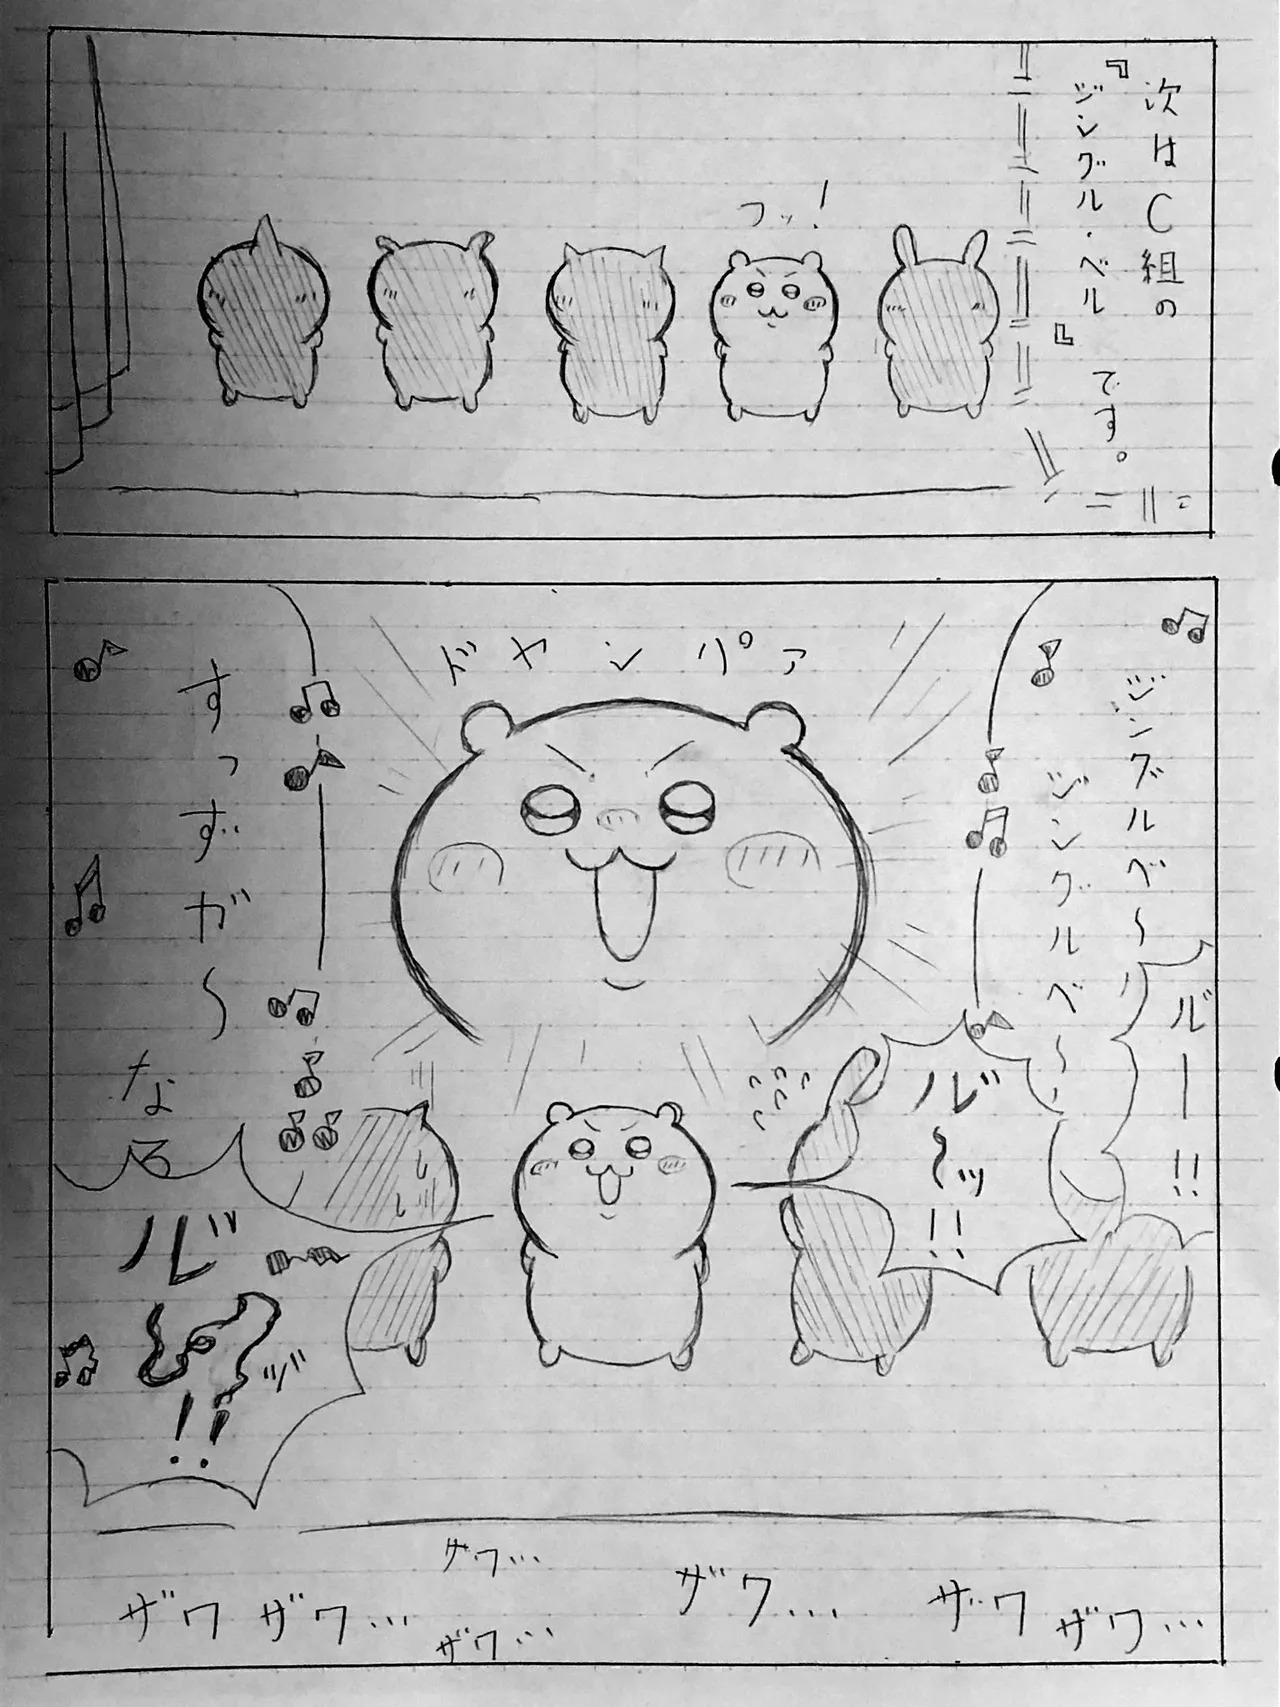 次はC組の
『ジングル・ベル』
です。
フッ！
ドヤンパァ
ジングルベ～
ルー!!
ジングルベ～
ル゛～ッ!!
すっずが～
なる
ル゛
ッ゛!!
ザワ
ザワ…
ザワ…
ザワ…
ザワ…
ザワ
ザワ…